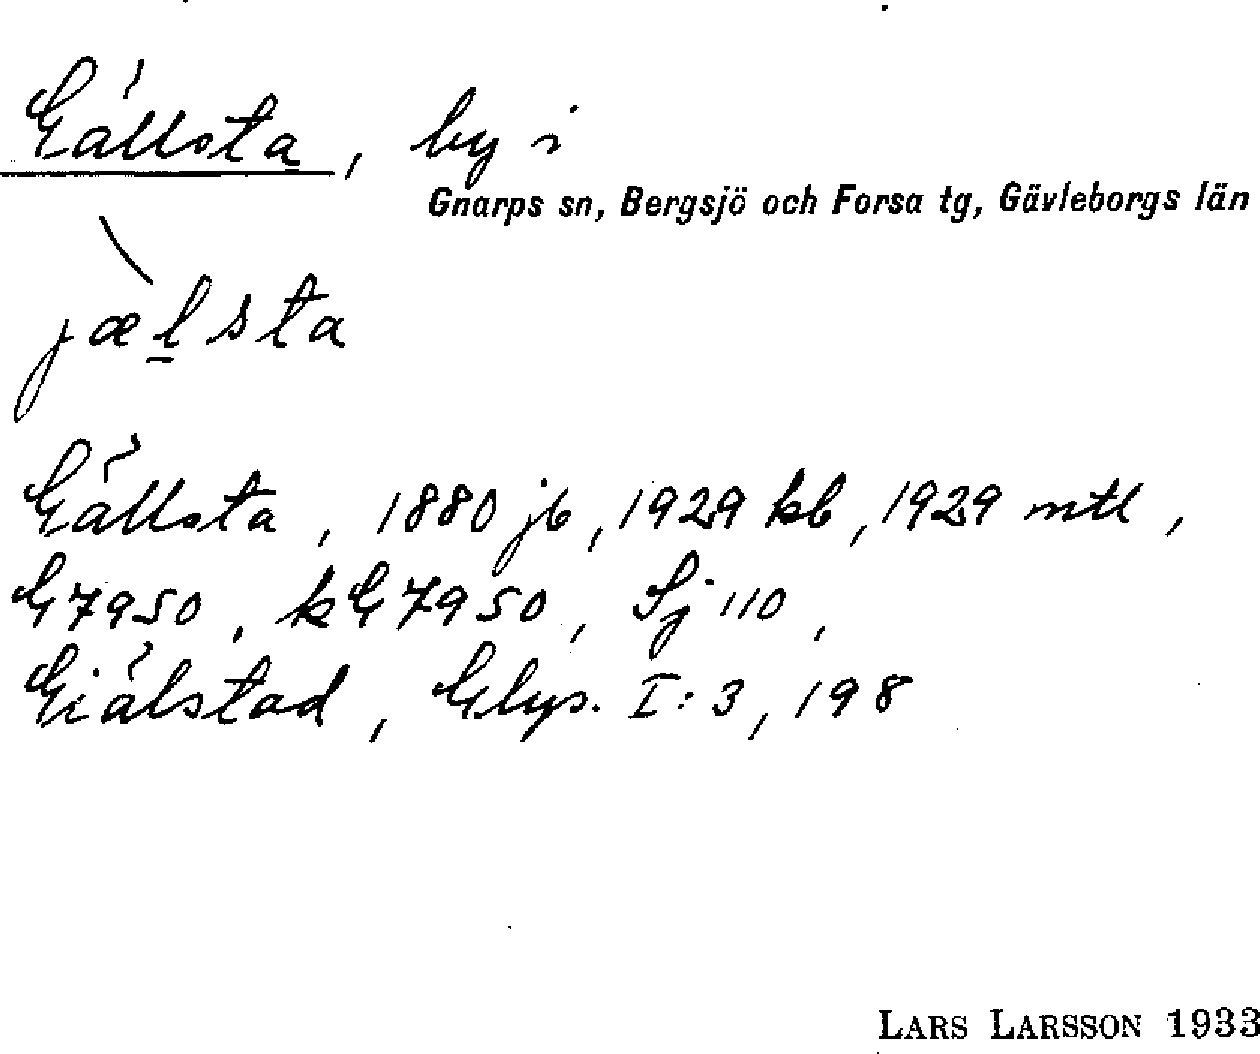 Gällsta, by i
Gnarps sn, Bergsjö och Forsa tg, Gävleborgs län
jælsta
Gällsta, 1880 jb, 1929 kb, 1929 mtl,
G 7950, kG 7950, Sj 110,
Giälstad, Glys. I:3, 198
LARS LARSSON 1933